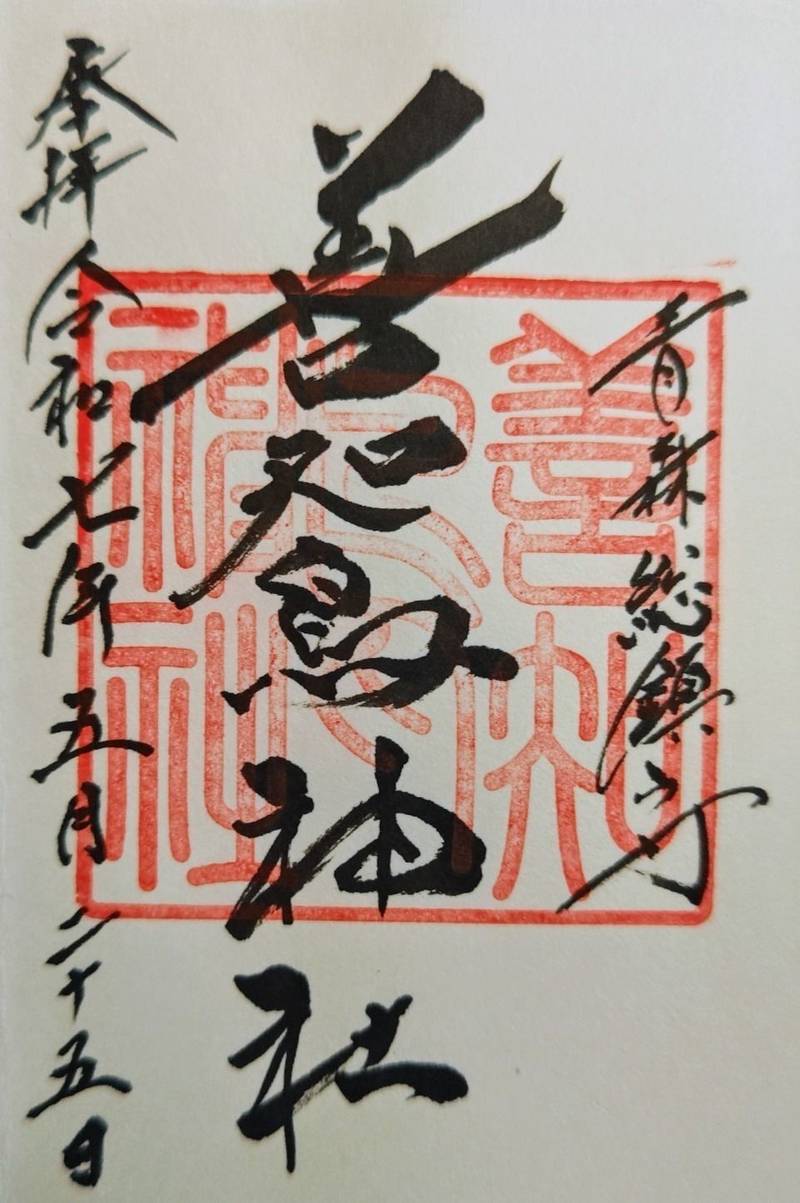 青森総鎮守
善知鳥神社
奉拝 令和七年五月二十五日
善知鳥神社